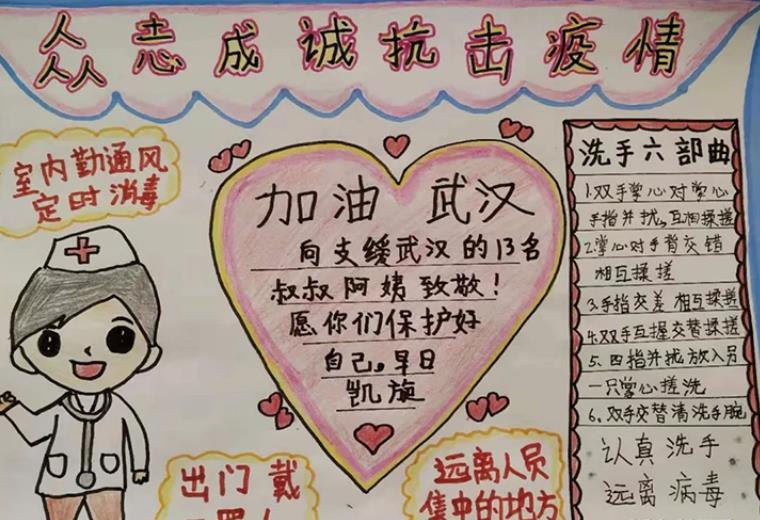 众志成诚抗击疫情
室内勤通风
定时消毒
加油 武汉
向支缓武汉的13名
叔叔阿姨致敬！
愿你们保护好
自己。早日
凯旋
洗手六部曲
1.双手掌心对掌心
手指并扰,互相揉搓
2.掌心对手背交错
相互揉搓
3.手指交差 相互揉搓
4.双手互握交替揉搓
5.四指并扰放入员
一只掌心搓洗
6.双手交替清洗手腕
认真洗手
远离病毒
出门戴
远离人员
集中的地方